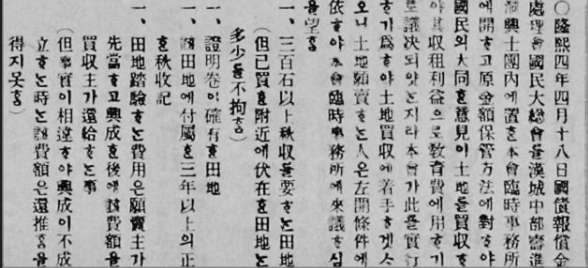 ○隆熙四年四月十八日國債報償金
處理會國民大總會를漢城中部審進
洞興士團內에置ᄒᆞᆫ本會臨時事務所
에開ᄒᆞ고原金額保管方法에對ᄒᆞ야
國民의大同ᄒᆞᆫ意見이土地를買收ᄒᆞ
야其收租利益으로敎育費에用ᄒᆞ기
로議決되얏ᄂᆞᆫ지라本會가此를實行
ᄒᆞ기爲ᄒᆞ야土地買收에着手ᄒᆞ겟ᄉᆞ
오니土地願賣ᄒᆞᄂᆞᆫ人은左開條件에
依ᄒᆞ야本會臨時事務所에來議ᄒᆞ심
을望ᄒᆞᆷ
一、三百石以上秋收를要ᄒᆞᄂᆞᆫ田地
(但已買ᄒᆞᆫ附近에伏在ᄒᆞᆫ田地ᄂᆞᆫ
多少를不拘ᄒᆞᆷ)
一、證明券이確有ᄒᆞᆫ田地
一、該田地에付屬ᄒᆞᆫ三年以上의正
ᄒᆞᆫ秋收記
一、田地踏驗ᄒᆞᄂᆞᆫ費用은願賣主가
先當ᄒᆞ고興成ᄒᆞᆫ後에該費額을
買收主가還給ᄒᆞᄂᆞᆫ事
(但事實이相違ᄒᆞ야興成이不成
立ᄒᆞᄂᆞᆫ時ᄂᆞᆫ該費額은還推ᄒᆞᆷ을
得지못ᄒᆞᆷ)